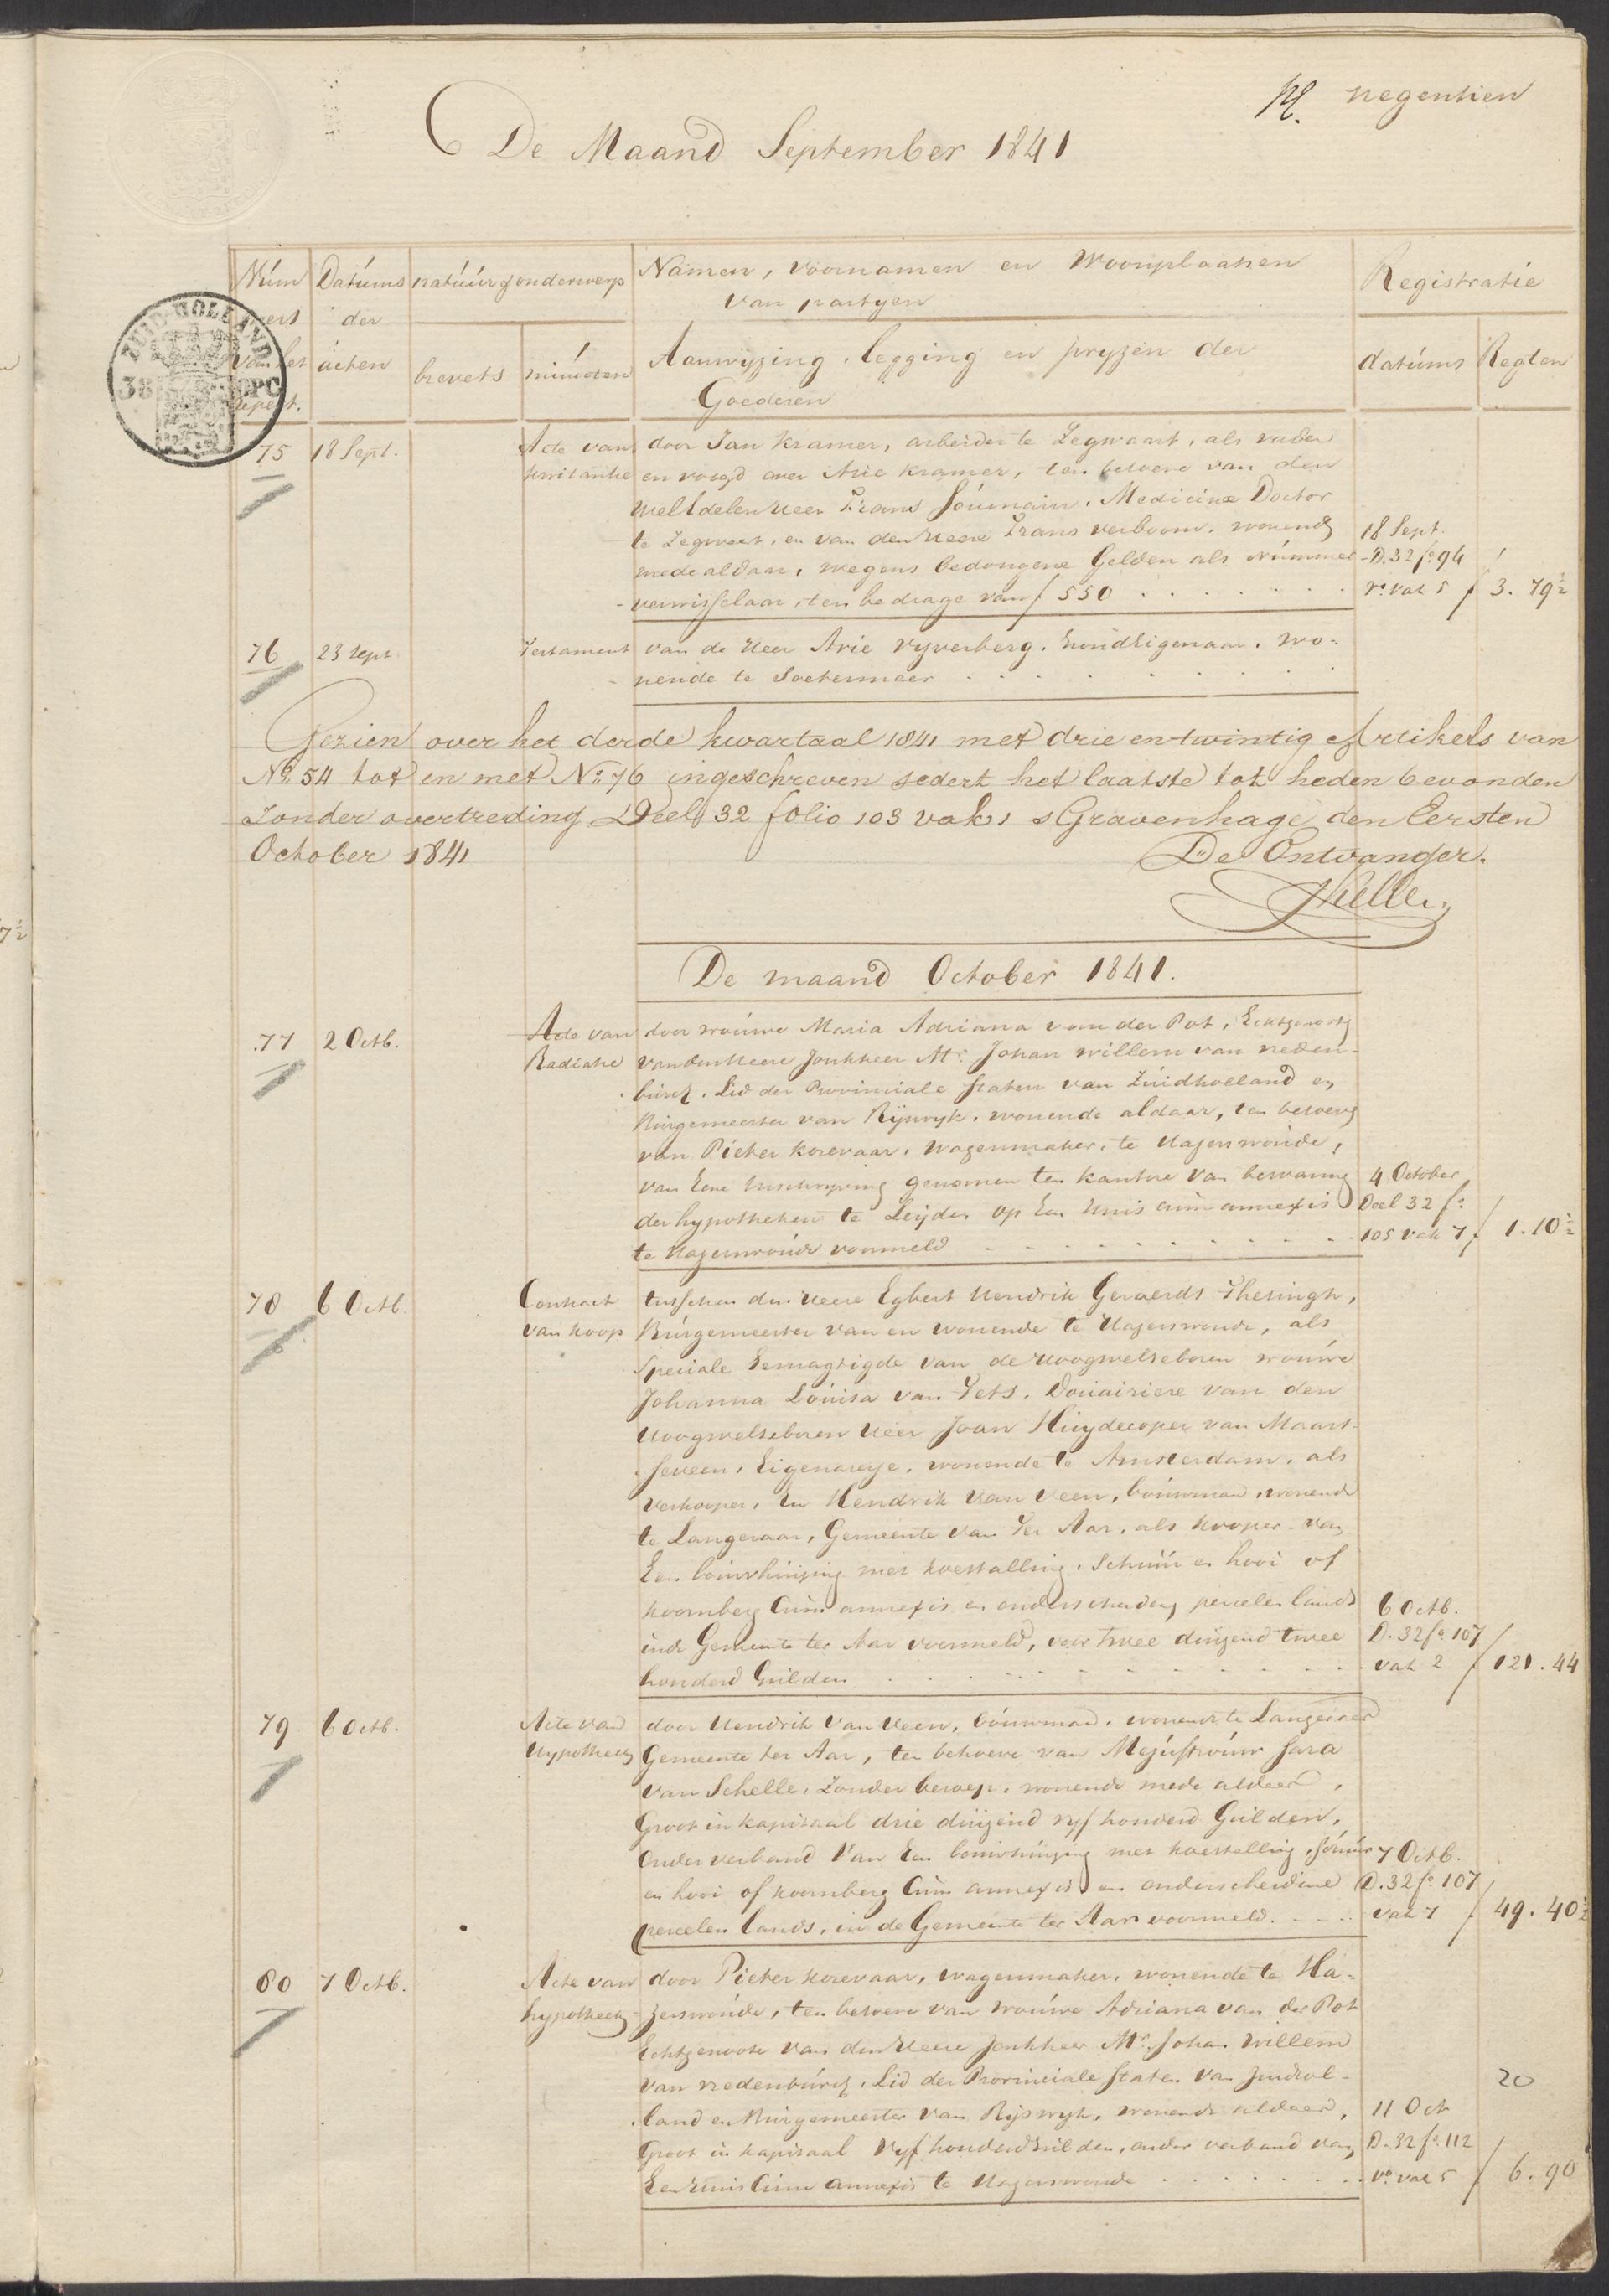 negentien
De Maand September 1841
Núm
mers
van het
Repert.
Datúms
der
acten
natúúr & onderwerp
brevets
minúten
Namen, voornamen en Woonplaatsen
van partyen
Aanwyzing, legging en pryzen der
Goederen
Registratie
datúms
Regten
ZUID-HOLLAND
38
OPC
75 18 Sept. Acte van door Jan Kramer, arbeider te Zegwaart, als vader
kwitantie en voogd over Arie Kramer, ten behoeve van den
WelEdelen Heer Frans Soumain, Medicine Doctor
te Zegwaart, en van den Heere Frans verboom, wonende 18 Sept.
mede aldaar, wegens bedongene Gelden als Nummer D. 32 fo. 94
verwisselaar, ten bedrage van f 550 ro. vak 5 f 3. 79½
76 23 Sept Testament van de Heer Arie Vyverberg, Grondeigenaar, wo-
nende te Soetermeer
Gezien over het derde kwartaal 1841 met drie en twintig Artikels van
No. 54 tot en met No. 76 ingeschreven sedert het laatste tot heden bevonden
zonder overtreding Deel 32 folio 103 vak 1 s Gravenhage den Eersten
October 1841 De Ontvanger.
De maand October 1841.
77 2 Octb. Acte van door vrouwe Maria Adriana van der Pot, Echtgenoote
Radiatie van den Heere Jonkheer Mr. Johan willem van vreden-
búrch, Lid der Provinciale Staten van Zúidholland en
Búrgemeester van Rijswyk, wonende aldaar, ten behoeve
van Pieter Korevaar, wagenmaker, te Hazerswoúde,
van Eene Inschryving genomen ten kantore van bewaring 4 October
der hypotheken te Leyden op Een Huis cúm annexis Deel 32 fo.
te Hazerswoúde voormeld 105 vak 7 f 1. 10½
78 6 Octb. Contract tusschen den Heere Egbert Hendrik Geraerds Thesingh,
van koop Búrgemeester van en wonende te Hazerswoude, als
Speciale Gemagtigde van de Hoogwelgeboren vrouwe
Johanna Loúisa van Tets, Doúairiere van den
Hoogwelgeboren Heer Joan Húydecoper van Maars-
seveen, Eigenaresse, wonende te Amsterdam, als
verkooper, En Hendrik van Veen, boúwman, wonende
te Langeraar, Gemeente van Ter Aar, als kooper van
Een boúwhúizing met koestalling, Schuúr en hooi of
koornberg Cúm annexis en onderscheiden percelen lands 6 Octb.
in de Gemeente ter Aar voormeld, voor twee dúizend twee D. 32 fo. 107
honderd Gúlden vak 2 f 121. 44
79 6 Octb. Acte van door Hendrik van Veen, boúwman, wonende te Langeraar
Hypotheek Gemeente ter Aar, ten behoeve van Mejúfvroúw Sara
van Schelle, Zonder beroep, wonende mede aldaar,
Groot in kapitaal drie dúizend vyf honderd Gúlden,
onder verband Van Een boúwhúizing met koestalling, schúúr 7 Octb.
en hooi of koornberg Cúm annexis en onderscheidene D. 32 fo. 107
percelen lands, in de Gemeente ter Aar voormeld. vak 7 f 49. 40½
80 7 Octb. Acte van door Pieter Korevaar, wagenmaker, wonende te Ha-
hypotheek zerswoúde, ten behoeve van vroúwe Adriana van der Pot
Echtgenoote van den Heere Jonkheer Mr. Johan Willem
van vredenbúrch, Lid der Provinciale Staten van Zuidhol- 20
land en Búrgemeester van Rijswyk, wonende aldaar, 11 Oct
Groot in kapitaal Vyf honderd Gulden, onder verband van D. 32 fo. 112
Een Huis Cúm annexis te Hazerswoude vo. vak 5 f 6. 90